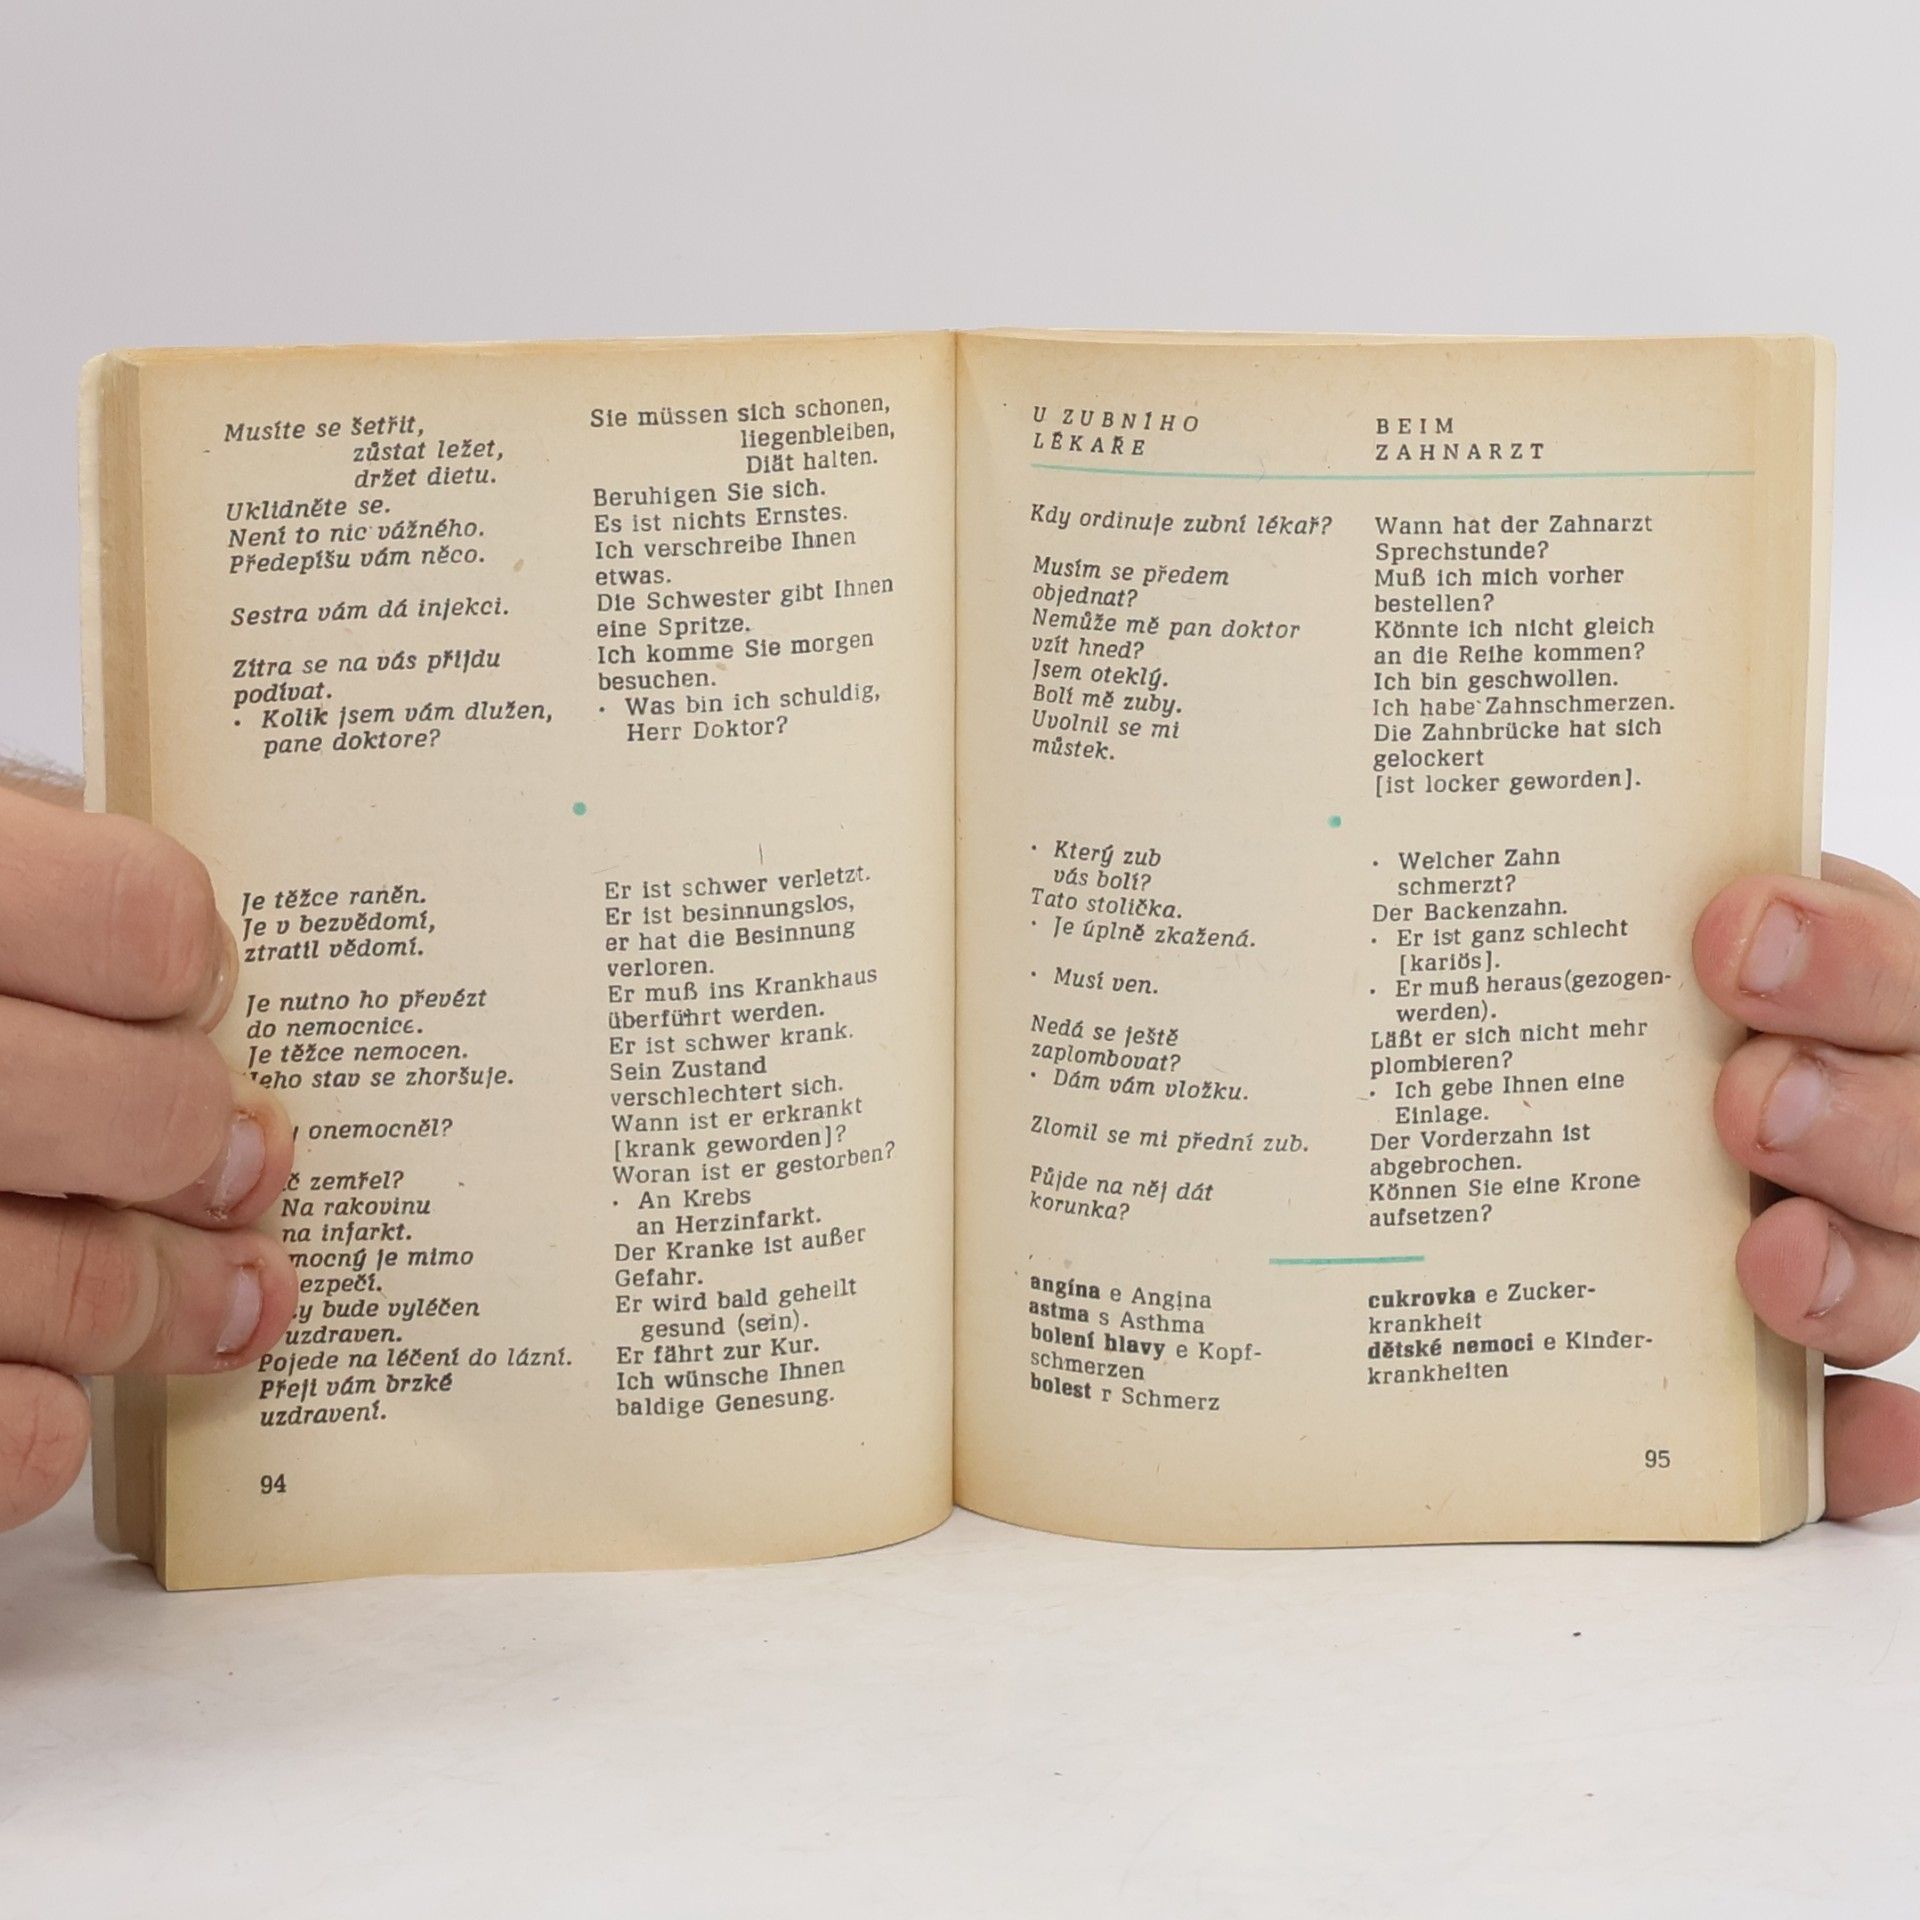 Musíte se šetřit,
zůstat ležet,
držet dietu.
Uklidněte se.
Není to nic vážného.
Předepíšu vám něco.
Sestra vám dá injekci.
Zítra se na vás přijdu
podívat.
• Kolik jsem vám dlužen,
pane doktore?
Je těžce raněn.
Je v bezvědomí,
ztratil vědomí.
Je nutno ho převézt
do nemocnice.
Je těžce nemocen.
Jeho stav se zhoršuje.
onemocněl?
zemřel?
Na rakovinu
na infarkt.
je mimo
bude vyléčen
uzdraven.
Pojede na léčení do lázní.
Přeji vám brzké
uzdravení.
94
Sie müssen sich schonen,
liegenbleiben,
Diät halten.
Beruhigen Sie sich.
Es ist nichts Ernstes.
Ich verschreibe Ihnen
etwas.
Die Schwester gibt Ihnen
eine Spritze.
Ich komme Sie morgen
besuchen.
• Was bin ich schuldig,
Herr Doktor?
Er ist schwer verletzt.
Er ist besinnungslos,
er hat die Besinnung
verloren.
Er muß ins Krankhaus
überführt werden.
Er ist schwer krank.
Sein Zustand
verschlechtert sich.
Wann ist er erkrankt
[krank geworden]?
Woran ist er gestorben?
• An Krebs
an Herzinfarkt.
Der Kranke ist außer
Gefahr.
Er wird bald geheilt
gesund (sein).
Er fährt zur Kur.
Ich wünsche Ihnen
baldige Genesung.
U ZUBNÍHO
LÉKAŘE
Kdy ordinuje zubní lékař?
Musím se předem
objednat?
Nemůže mě pan doktor
vzít hned?
Jsem oteklý.
Bolí mě zuby.
Uvolnil se mi
můstek.
• Který zub
vás bolí?
Tato stolička.
• Je úplně zkažená.
• Musí ven.
Nedá se ještě
zaplombovat?
• Dám vám vložku.
Zlomil se mi přední zub.
Půjde na něj dát
korunka?
BEIM
ZAHNARZT
Wann hat der Zahnarzt
Sprechstunde?
Muß ich mich vorher
bestellen?
Könnte ich nicht gleich
an die Reihe kommen?
Ich bin geschwollen.
Ich habe Zahnschmerzen.
Die Zahnbrücke hat sich
gelockert
[ist locker geworden].
• Welcher Zahn
schmerzt?
Der Backenzahn.
• Er ist ganz schlecht
[kariös].
• Er muß heraus(gezogen-
werden).
Läßt er sich nicht mehr
plombieren?
• Ich gebe Ihnen eine
Einlage.
Der Vorderzahn ist
abgebrochen.
Können Sie eine Krone
aufsetzen?
angína e Angina
astma s Asthma
bolení hlavy e Kopf-
schmerzen
bolest r Schmerz
cukrovka e Zucker-
krankheit
dětské nemoci e Kinder-
krankheiten
95